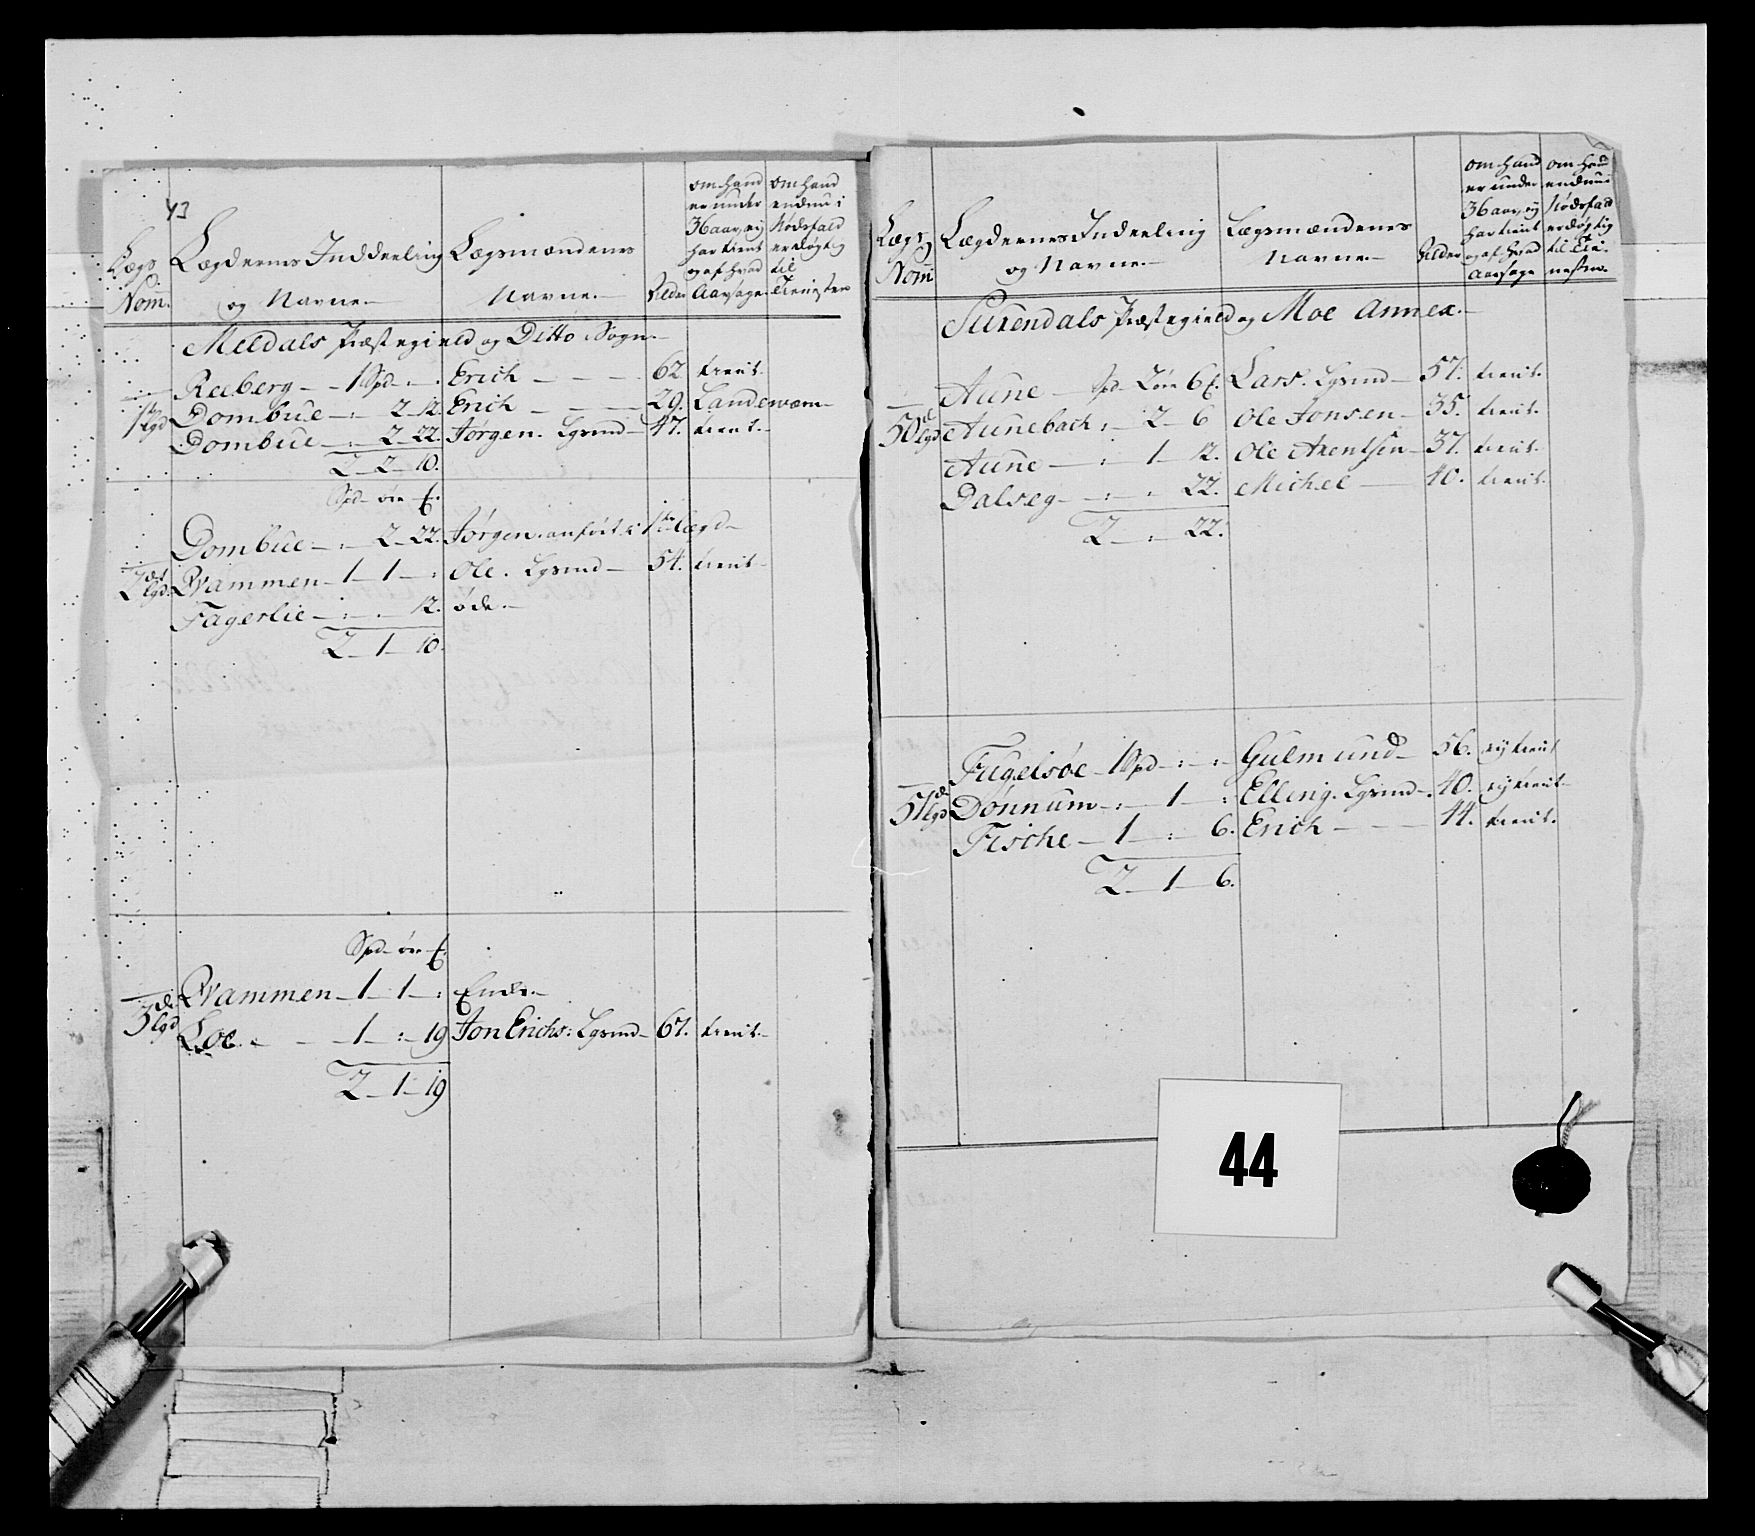 43
Lægs Nom.
Lægdernes Inddeeling og Navne.
Lægsmændenes Navne.
Alder
om hand er under 36 aar, ej har tient og af hvad Aarsage
om hand endnu i Nødsfald er døgtig til Tienisten
Meldals Præstegield og Ditto Sogn.
Reeberg - 1 Spd - : - : Erich - 62 tient.
1ste lgd Dombue - : 2 - 12. Erich - 29. Landewærn
Dombue - : 2 - 22. Jørgen. Lgsmd - 47. tient.
2 - 2 - 10.
Spd - øre -
Dombue - : 2 - 22. Jørgen. anført i 1ste Lægd -
2det lgd. Qvammen - 1 - 1 - : Ole. Lgsmd - 54. tient -
Fagerlie - : - . 12. øde. -
2 - 1 - 10.
Spd - øre
Qvammen - 1 - 1 - :
3de lgd Loe. - 1 - : 19 Jon Erichs: Lgsmd - 67. tient. -
2 - 1 - 19
Lægs Nom
Lægdernes Indeeling og Navne. -
Lægsmændenes Navne. -
Alder
om hand er under 36 aar, ej har tient og af hvad Aarsage
om hand endnu i Nødsfald er døgtig til Tienesten.
Surendals Præstegield og Moe Annex. -
Aune - Spd - 2 øre 6 Lars. Lgsmd - 57. tient.
50de lgd Aunebach : - 2 - 6 Ole Jonsen - 35. tient.
Aune - : 1 - 12. Ole Arentsen - 37. tient.
Dalseg - : - . 22. Michel - 40. tient.
2 - : - 22.
Fugelsøe - 1 Spd - : - : Gulmund - 56. ej tient
51de lgd Dønnum - : 1 - : Elling. Lgsmd - 40. ej tient -
Fiske - 1 - : 6. Erich - 44. tient.
2 - 1 - 6.
44